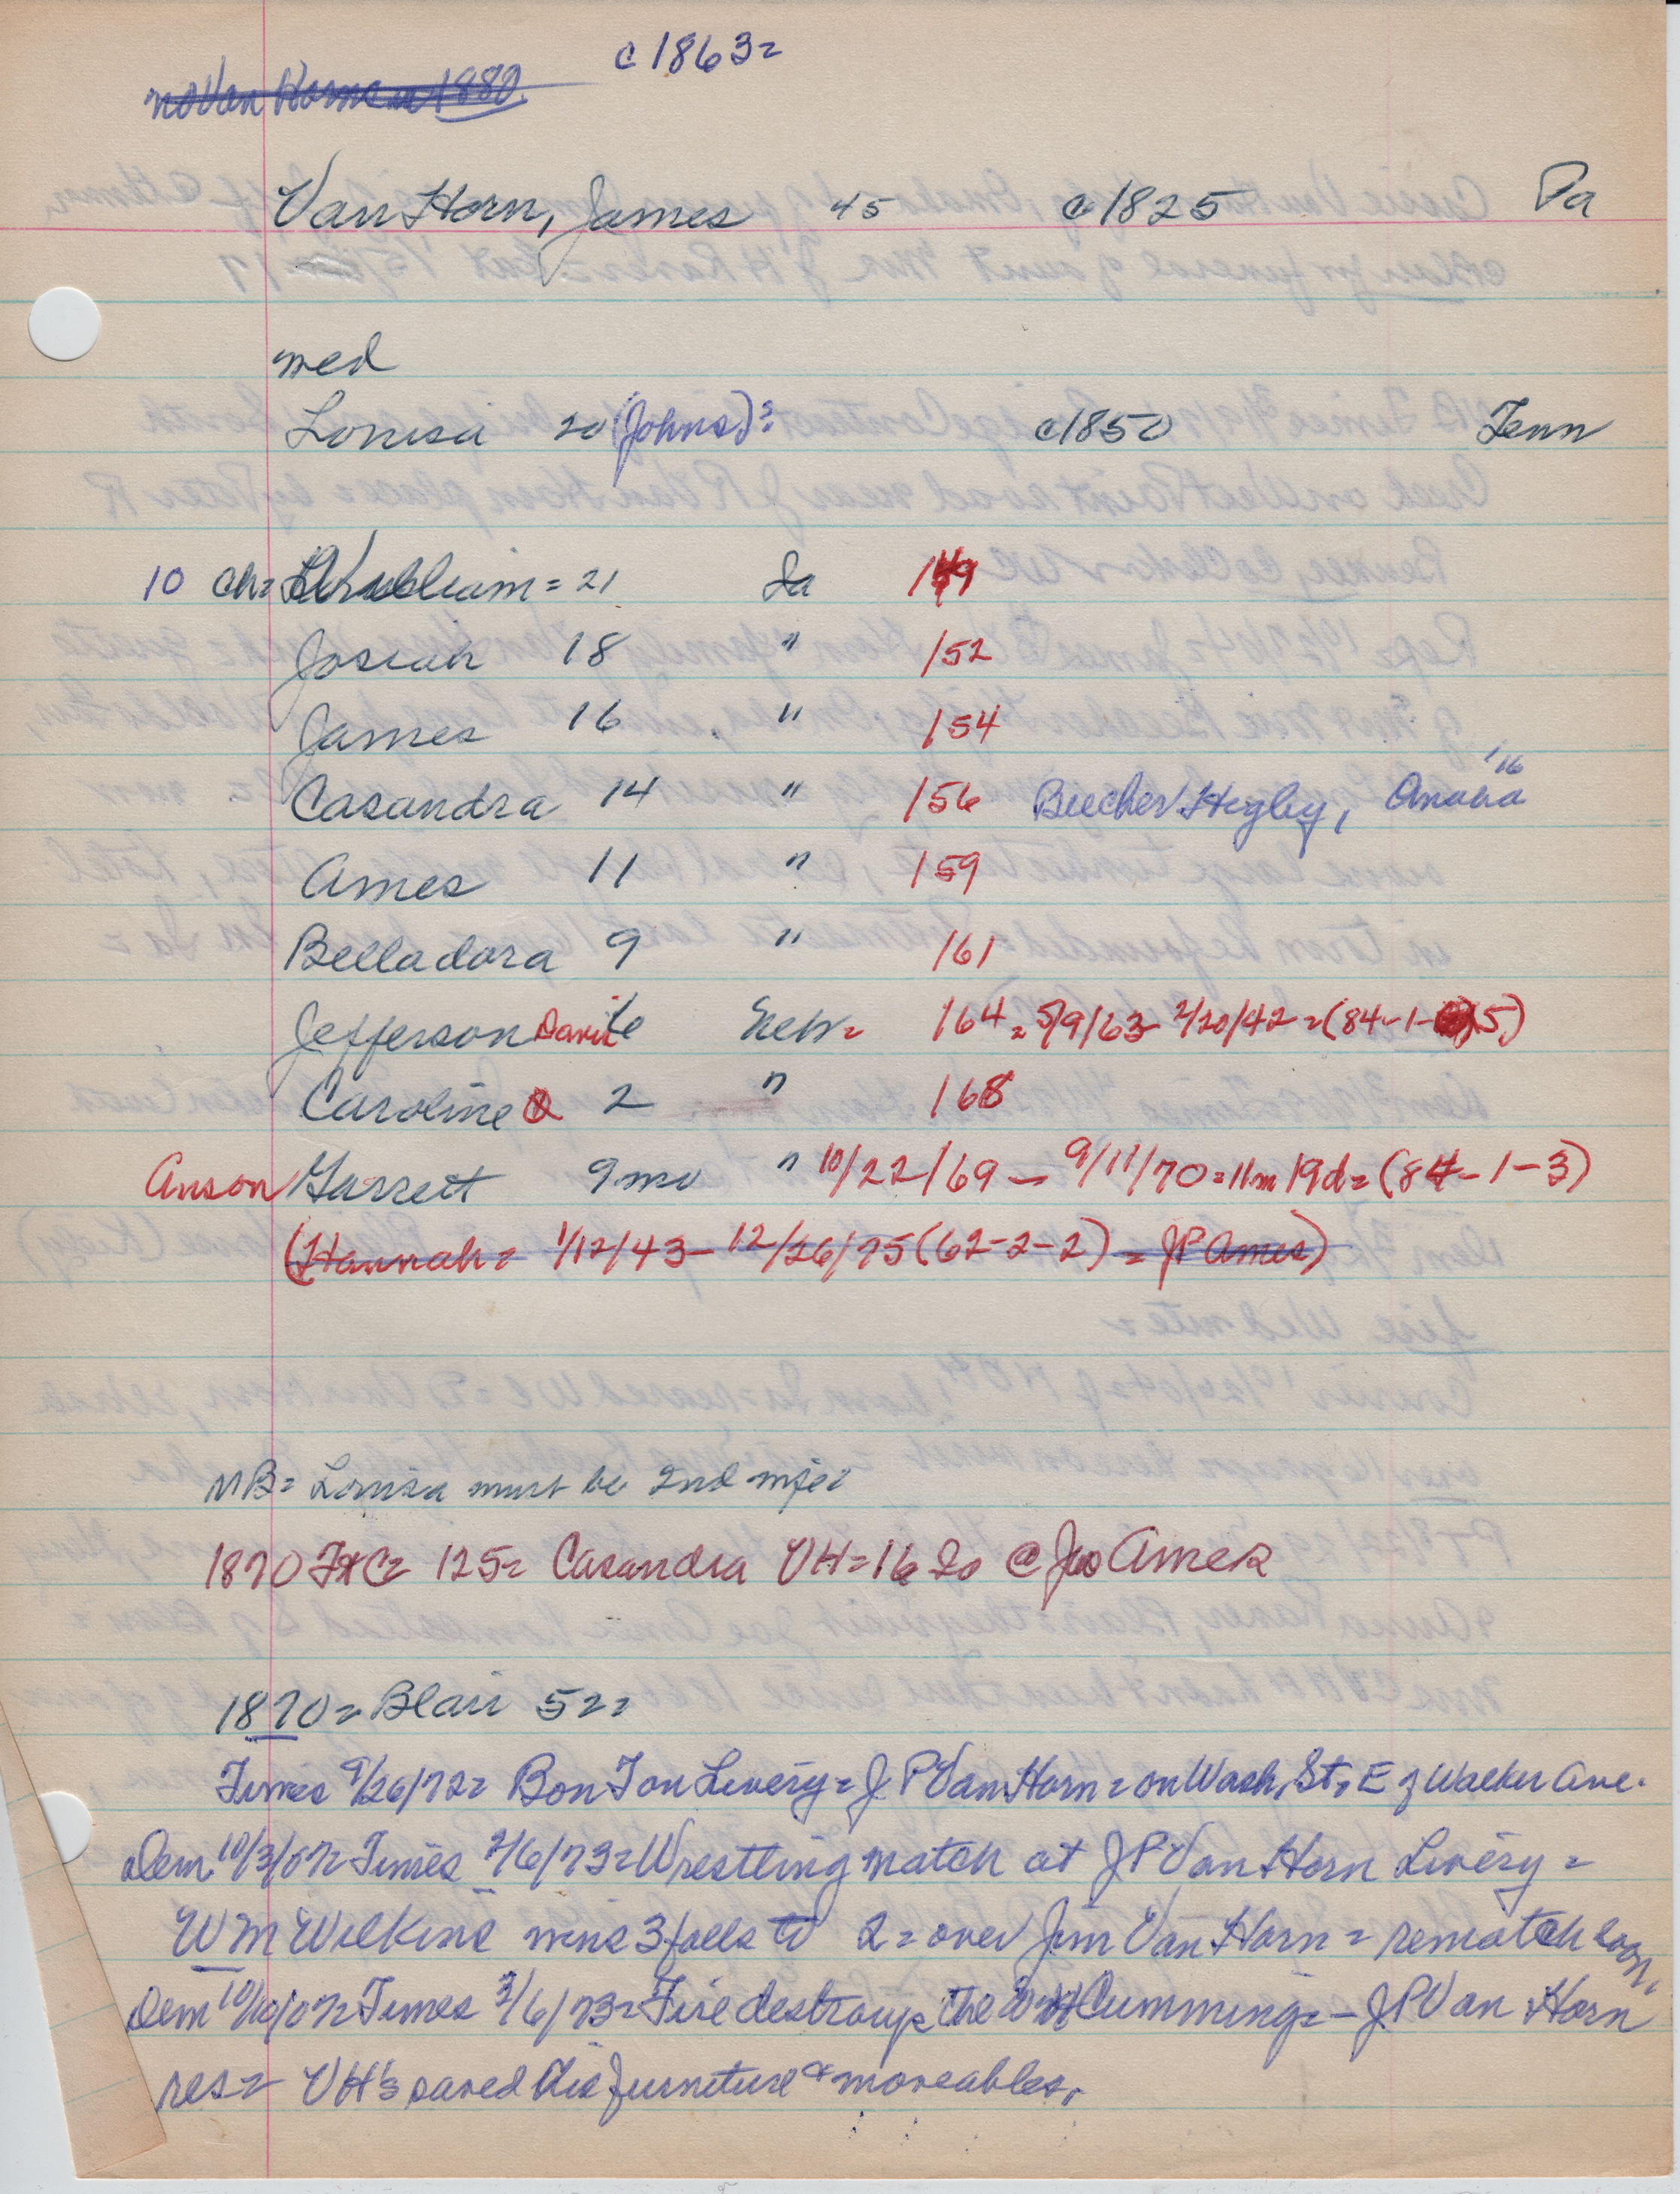 c 1863=
no Van Horne in 1880.
Van Horn, James 45 c 1825 Pa
med
Louisa 20 (Johns)? c1850 Tenn
10 ch= William = 21 Ia 149
Josiah 18 " 152
James 16 " 154
'16
Casandra 14 " 156 Beecher Higby, Omaha
Ames 11 " 159
Belladora 9 " 161
Jefferson Davis 6 Neb= 164 = 5/9/63- 2/20/42 = (84-1-5)
Caroline 2 " 168
Anson Garrett 9 mo " 10/22/69 — 9/11/70 = 11m 19d = (84-1-3)
(Hannah = 1/12/43 - 12/26/75 (62-2-2) = JP Ames)
NB= Louisa must be 2nd wife
1870 FtC= 125= Casandra VH=16 Io @ Jos Ames
1870= Blair 52=
Times 9/26/72= Bon Ton Livery= J P Van Horn= on Wash. St. E of Walker Ave.
Dem 10/3/07= Times 2/6/73= Wrestling match at J P Van Horn Livery=
WM Wilkins wins 3 falls to 2= over Jim Van Horn= rematch soon.
Dem 10/10/07= Times 3/6/73= Fire destroys the Cumming= - J P Van Horn
res= VH's saved his furniture & moveables.